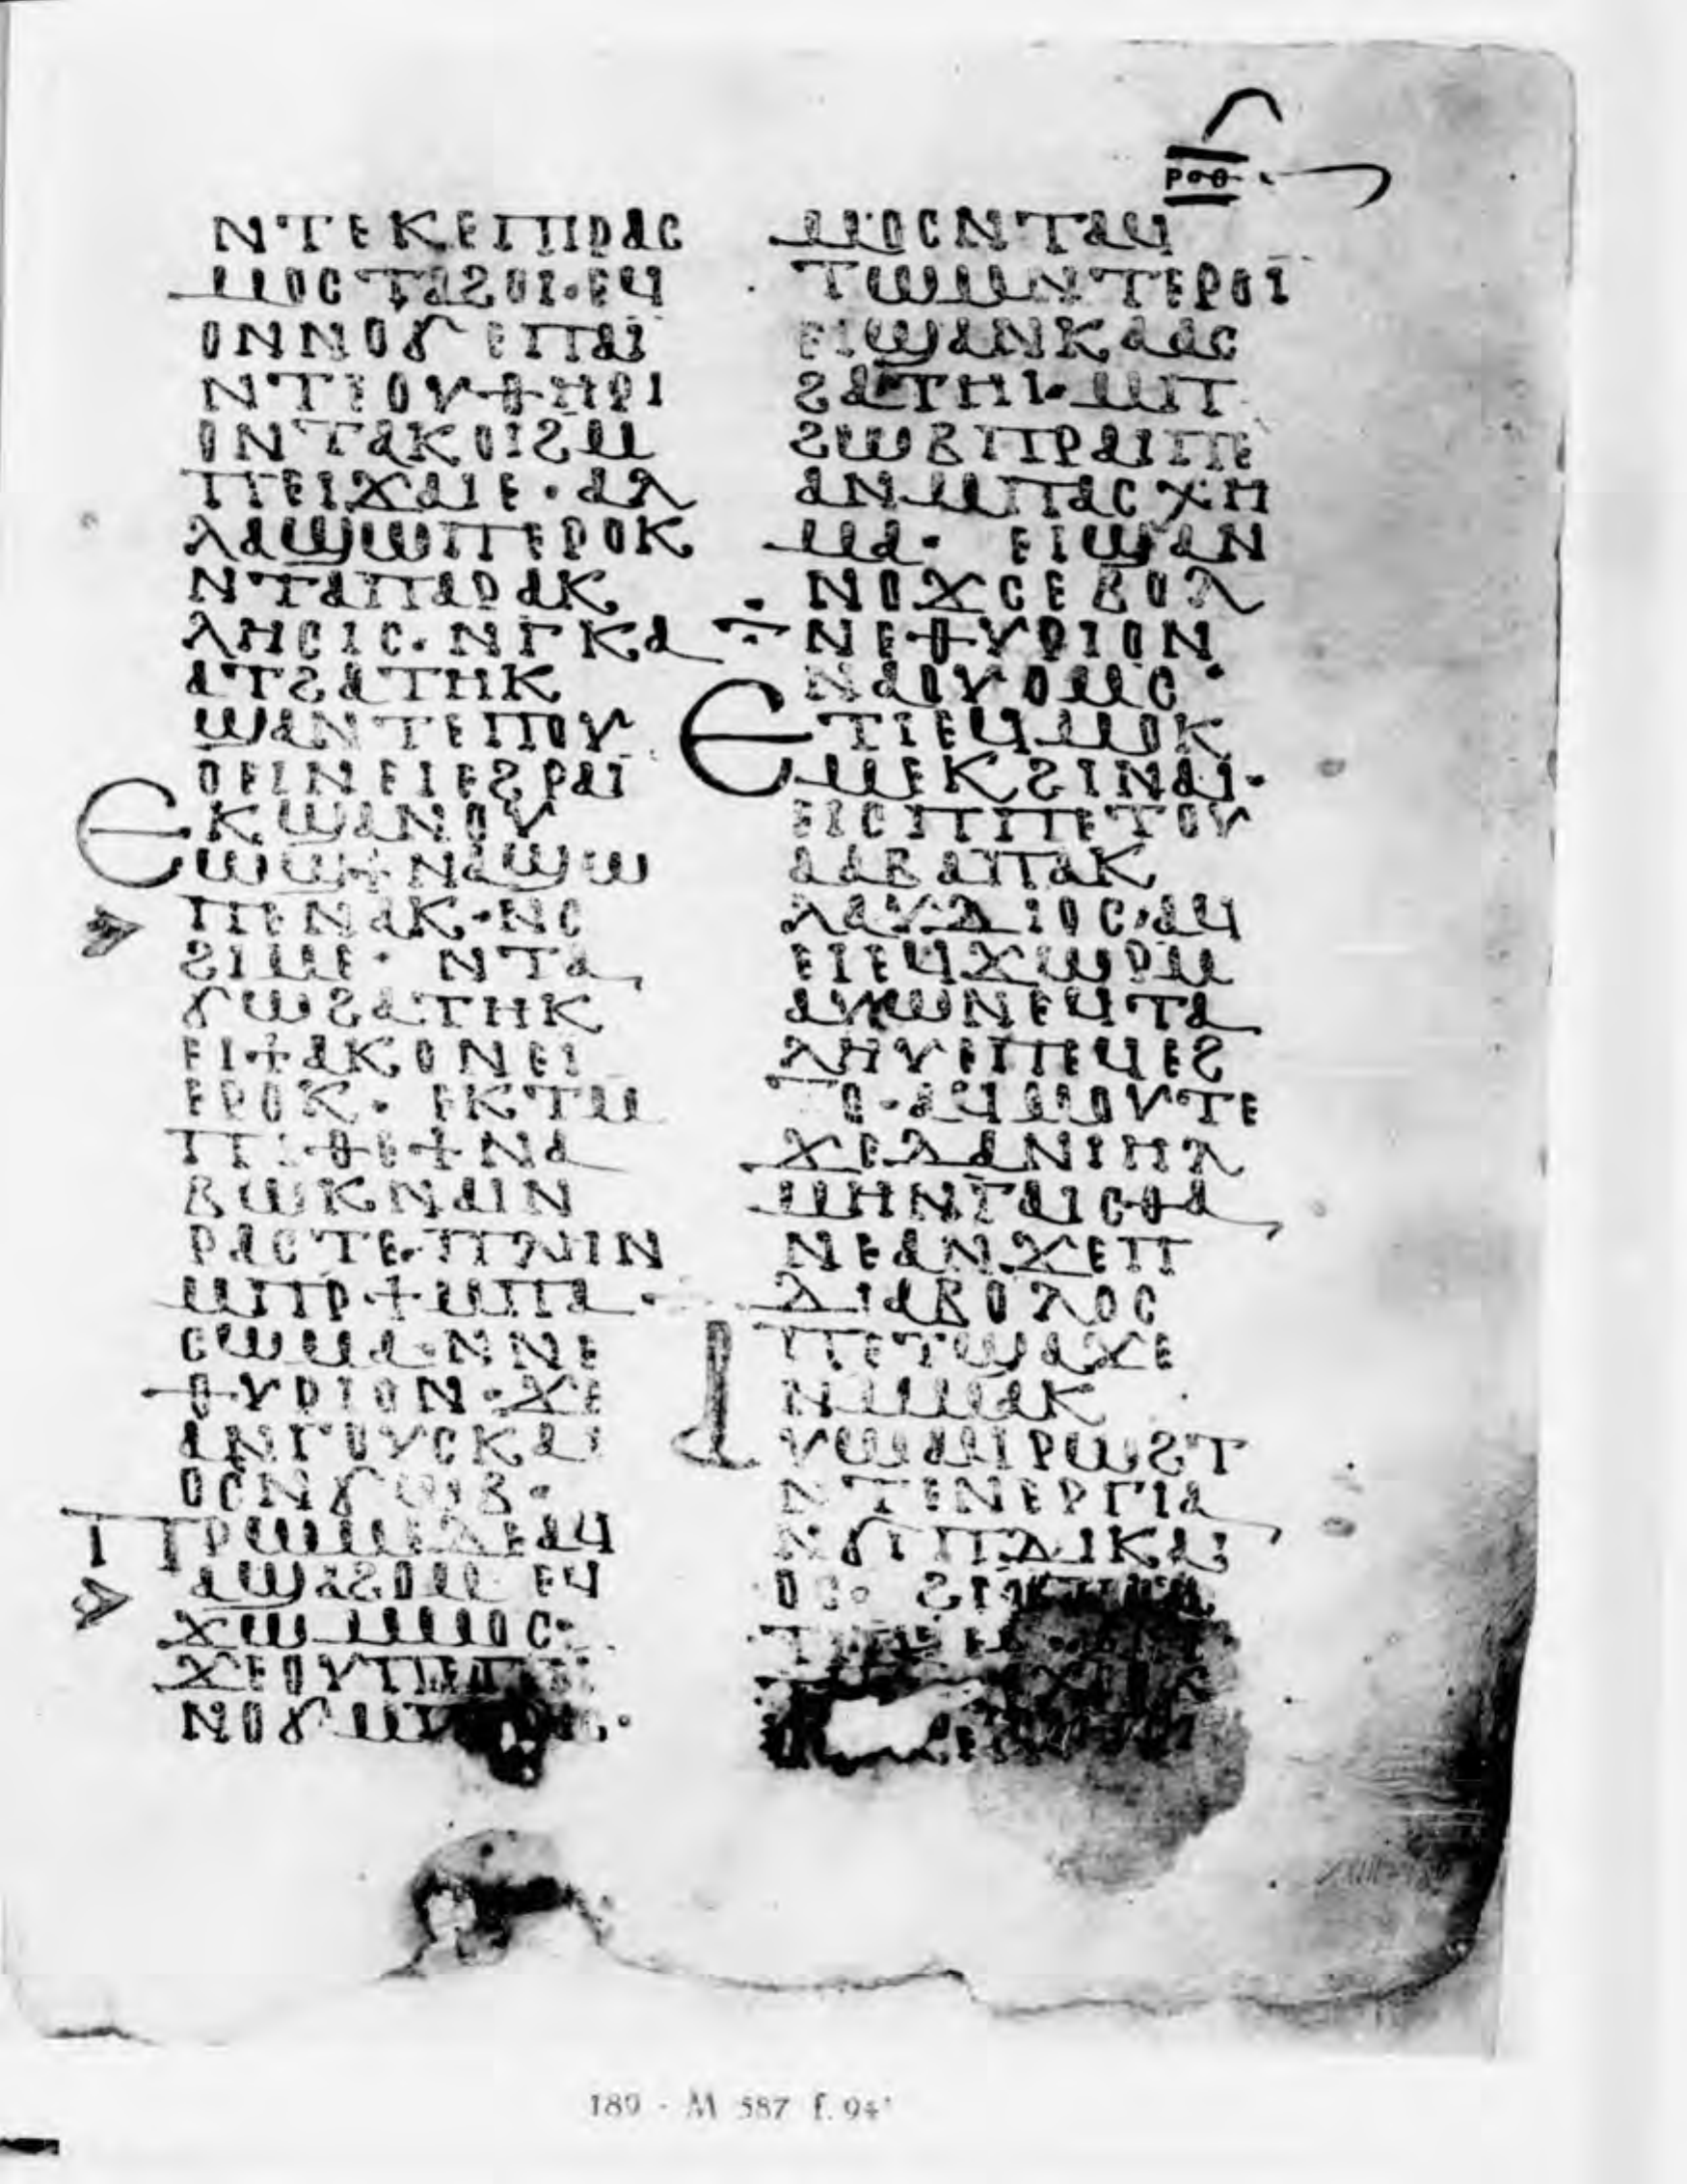 ⲣⲟⲑ
ⲛⲧⲉⲕⲉⲓⲡⲓⲣⲁⲥ
ⲙⲟⲥⲧⲁϩⲟⲓ·ⲉϥ
ⲟⲛⲛⲟϭⲉⲡⲁⲓ̈
ⲛⲧⲓⲟⲩⲑⲏⲣⲓ
ⲟⲛⲧⲁⲕⲟⲓϩⲙ
ⲡⲉⲓϫⲁⲓⲉ·ⲁⲗ
ⲗⲁϣⲱⲡⲉⲣⲟⲕ
ⲛⲧⲁⲡⲁⲣⲁⲕ
ⲗⲏⲥⲓⲥ·ⲛⲅⲕⲁ
ⲁⲧϩⲁⲧⲏⲕ
ϣⲁⲛⲧⲉⲡⲟⲩ
ⲟⲉⲓⲛⲉⲓⲉϩⲣⲁⲓ̈
ⲉⲕϣⲁⲛⲟⲩ
ⲱϣϯⲛⲁϣⲱ
ⲡⲉⲛⲁⲕ·ⲛⲥ
ϩⲓⲙⲉ· ⲛⲧⲁ
ϭⲱϩⲁⲧⲏⲕ
ⲉⲓϯⲁⲕⲟⲛⲉⲓ
ⲉⲣⲟⲕ· ⲉⲕⲧⲙ
ⲡⲓⲑⲉϯⲛⲁ
ⲃⲱⲕⲛⲁⲓⲛ
ⲣⲁⲥⲧⲉ·ⲡⲗⲏⲛ
ⲙⲡⲣϯⲙⲡⲁ
ⲥⲱⲙⲁ·ⲛⲛⲉ
ⲑⲩⲣⲓⲟⲛ·ϫⲉ
ⲁⲛⲅⲟⲩⲥⲕⲁⲓ
ⲟⲥⲛϭⲱⲃ·
ⲡⲣⲱⲙⲉⲇⲉⲁϥ
ⲁϣⲁϩⲟⲙ ⲉϥ
ϫⲱⲙⲙⲟⲥ·
ϫⲉⲟⲩⲡⲉⲡⲉⲓ
ⲛⲟϭ
ⲙⲟⲥⲛⲧⲁϥ
ⲧⲱⲙⲛⲧⲉⲣⲟⲓ̈
ⲉⲓϣⲁⲛⲕⲁⲁⲥ
ϩⲁⲧⲏⲓ·ⲙⲡ
ϩⲱⲃⲡⲣⲁⲓⲡⲉ
ⲁⲛⲙⲡⲁⲥⲭⲏ
ⲙⲁ· ⲉⲓϣⲁⲛ
ⲛⲟϫⲥⲉⲃⲟⲗ
ⲛⲉⲑⲩⲣⲓⲟⲛ
ⲛⲁⲟⲩⲟⲙⲥ·
ⲉⲧⲓⲉϥⲙⲟⲕ
ⲙⲉⲕϩⲓⲛⲁⲓ·
ⲉⲓⲥⲡⲡⲉⲧⲟⲩ
ⲁⲁⲃⲁⲡⲁⲕ
ⲗⲁⲩⲇⲓⲟⲥ·ⲁϥ
ⲉⲓⲉϥϫⲱⲣⲙ
ⲁⲩⲱⲛⲉϥⲧⲁ
ⲗⲏⲩⲉⲡⲉϥⲉϩ
ⲧⲟ·ⲁϥⲙⲟⲩⲧⲉ
ϫⲉⲇⲁⲛⲓⲏⲗ
ⲙⲏⲛⲅⲁⲓⲥⲑⲁ
ⲛⲉⲁⲛϫⲉⲡ
ⲇⲓⲁⲃⲟⲗⲟⲥ
ⲡⲉⲧϣⲁϫⲉ
ⲛⲙⲙⲁⲕ
ⲁⲩⲱⲙⲡⲣⲱϩⲧ
ⲛⲧⲉⲛⲉⲣⲅⲓⲁ
ⲛϭⲓⲡⲇⲓⲕⲁⲓ
ⲟⲥ·
189 - M 587 f. 94ʳ